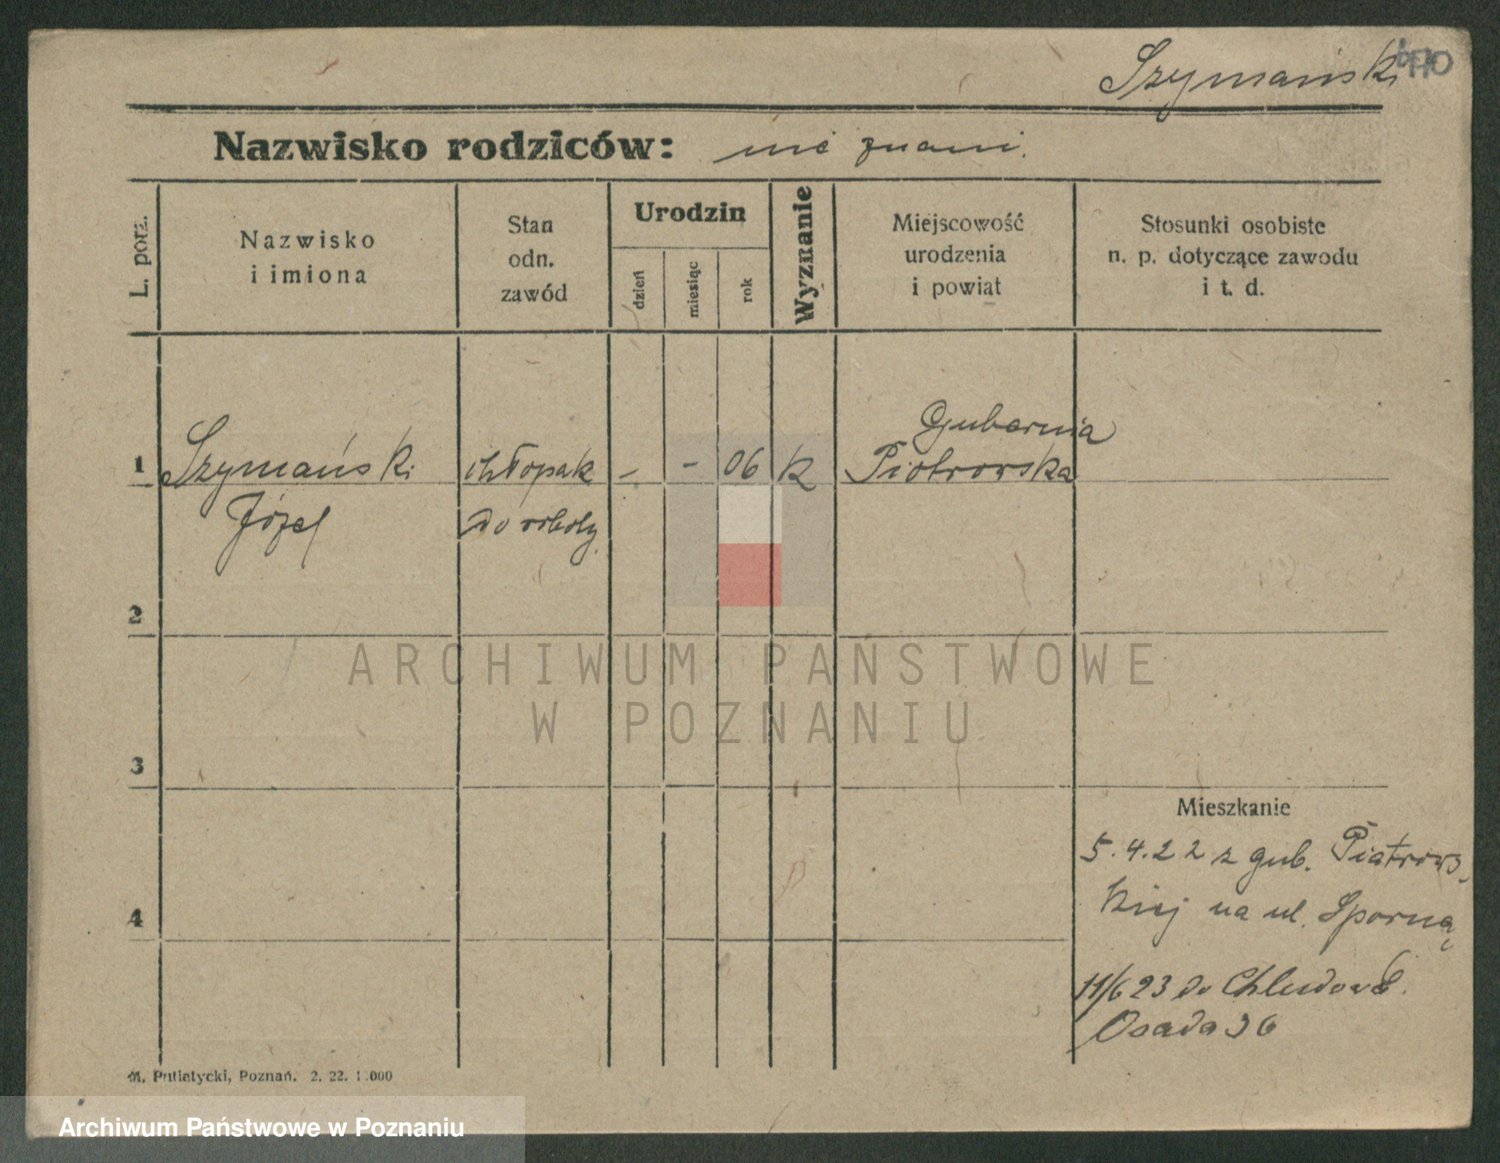 Szymański
Nazwisko rodziców: nie znani.
L. porz.
Nazwisko
i imiona
Stan
odn.
zawód
Urodzin
dzień
miesiąc
rok
Wyznanie
Miejscowość
urodzenia
i powiat
Stosunki osobiste
n. p. dotyczące zawodu
i t. d.
Gubernia
1 Szymański chłopak - - 06 k Piotrowska
Józef do roboty
2
ARCHIWUM PAŃSTWOWE
W POZNANIU
3
Mieszkanie
5.4.22 z gub. Piotrows
4 kiej na ul. Sporną
11/6 23 do Chludowa.
Osada 36
M. Putiatycki, Poznań. 2. 22. 1.000
Archiwum Państwowe w Poznaniu